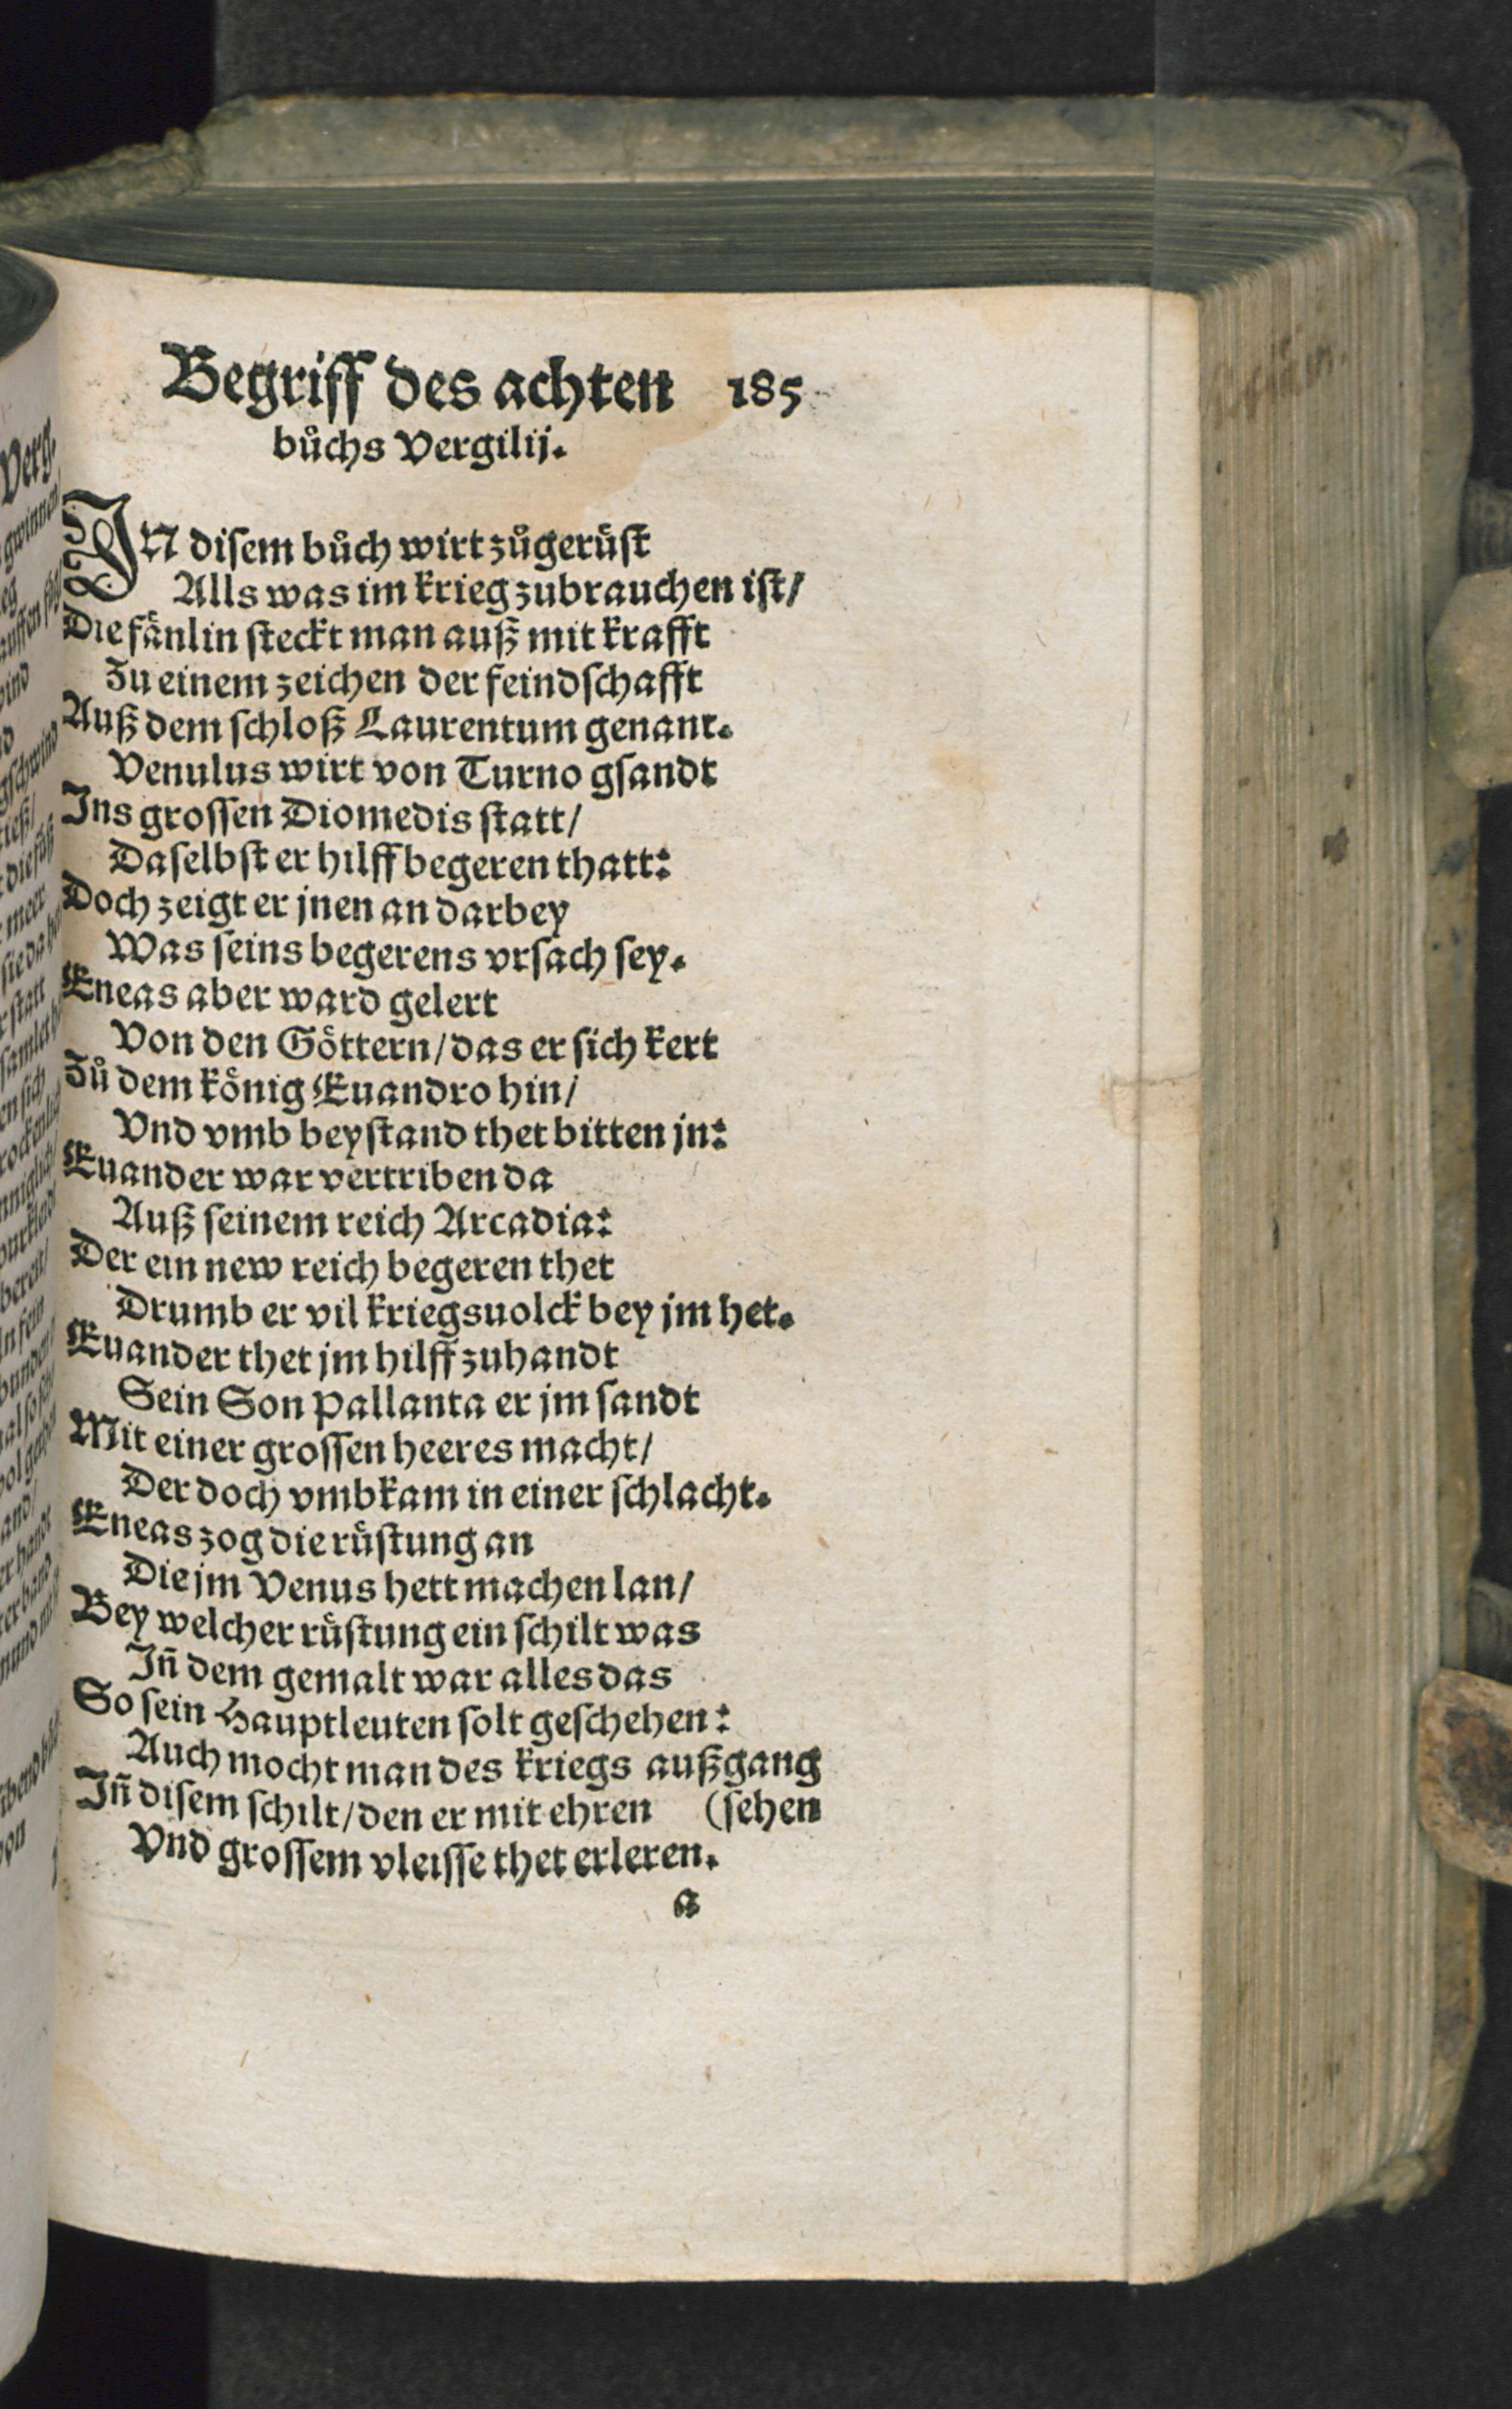 Begriff des achten 185
bůchs Vergilij.
IN diſem bůch wirt zůgerüſt
Alls was im krieg zubrauchen iſt/
Die fänlin ſteckt man auß mit krafft
Zu einem zeichen der feindſchafft
Auß dem ſchloß Laurentum genant.
Venulus wirt von Turno gſandt
Ins groſſen Diomedis ſtatt/
Daſelbſt er hilff begeren thatt:
Doch zeigt er jnen an darbey
Was ſeins begerens vrſach ſey.
Eneas aber ward gelert
Von den Göttern/ das er ſich kert
Zů dem könig Euandro hin/
Vnd vmb beyſtand thet bitten jn:
Euander war vertriben da
Auß ſeinem reich Arcadia:
Der ein new reich begeren thet
Drumb er vil kriegsuolck bey jm het.
Euander thet jm hilff zuhandt
Sein Son Pallanta er jm ſandt
Mit einer groſſen heeres macht/
Der doch vmbkam in einer ſchlacht.
Eneas zog die rüſtung an
Die jm Venus hett machen lan/
Bey welcher rüſtung ein ſchilt was
Iñ dem gemalt war alles das
So ſein Hauptleuten ſolt geſchehen:
Auch mocht man des kriegs außgang
Iñ diſem ſchilt/ den er mit ehren (ſehen
Vnd groſſem vleiſſe thet erleren.
a